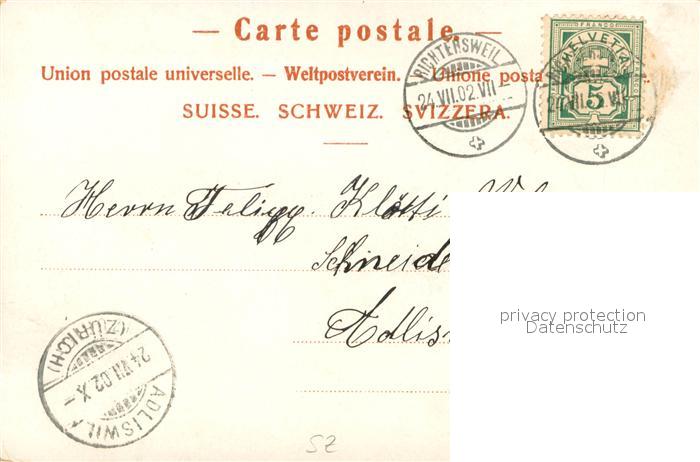 — Carte postale. —
Union postale universelle. — Weltpostverein. — Unione posta
SUISSE. SCHWEIZ. SVIZZERA.
RICHTERSWEIL
24.VII.02.VII
FRANCO
HELVETIA
5
Herrn Felix Klötti
Schneide
Adlis
privacy protection
Datenschutz
(ZÜRICH)
24.VII.02.X–
ADLISWIL
SZ